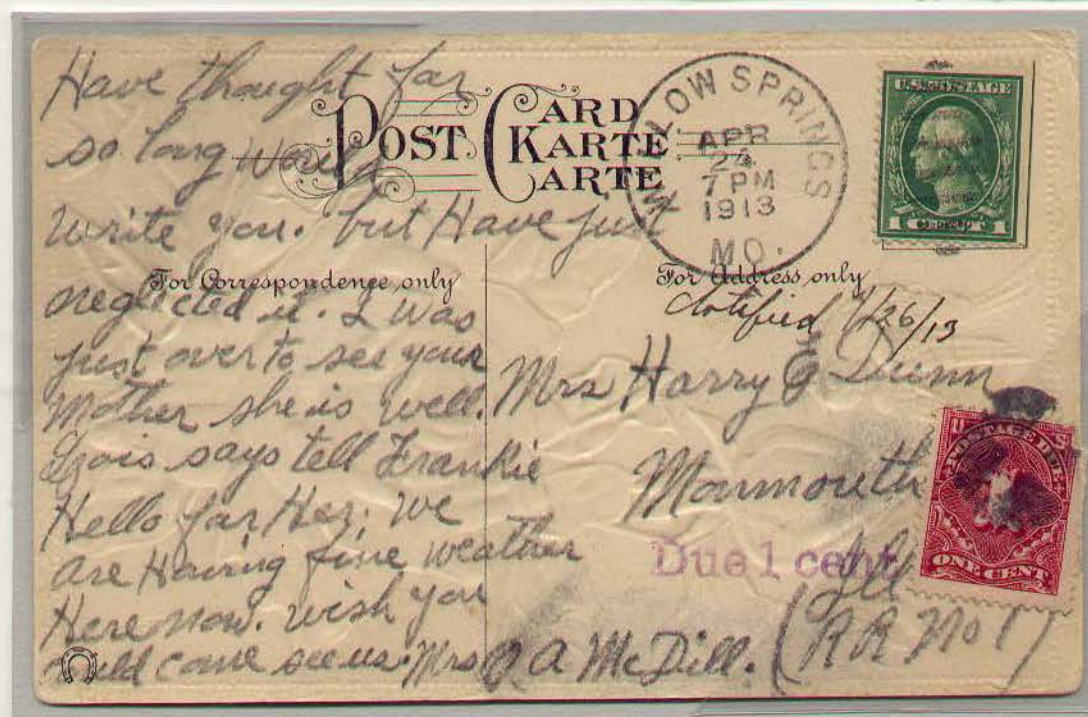 Have thought for
so long would
write you. but Have just
neglected it. I was
just over to see your
Mother she is well.
Lois says tell Frankie
Hello for Her; we
are Having fine weather
Here now. wish you
could come see us. Mrs A McDill.
POST CARD
KARTE
CARTE
For Correspondence only
For Address only
WILLOW SPRINGS
APR
24
7 PM
1913
MO.
U.S. POSTAGE
1 1
Notified 4/26/13
Mrs Harry E Dunn
Monmouth
Ill
(RR No 1)
Due 1 cent
U S
POSTAGE DUE
ONE CENT